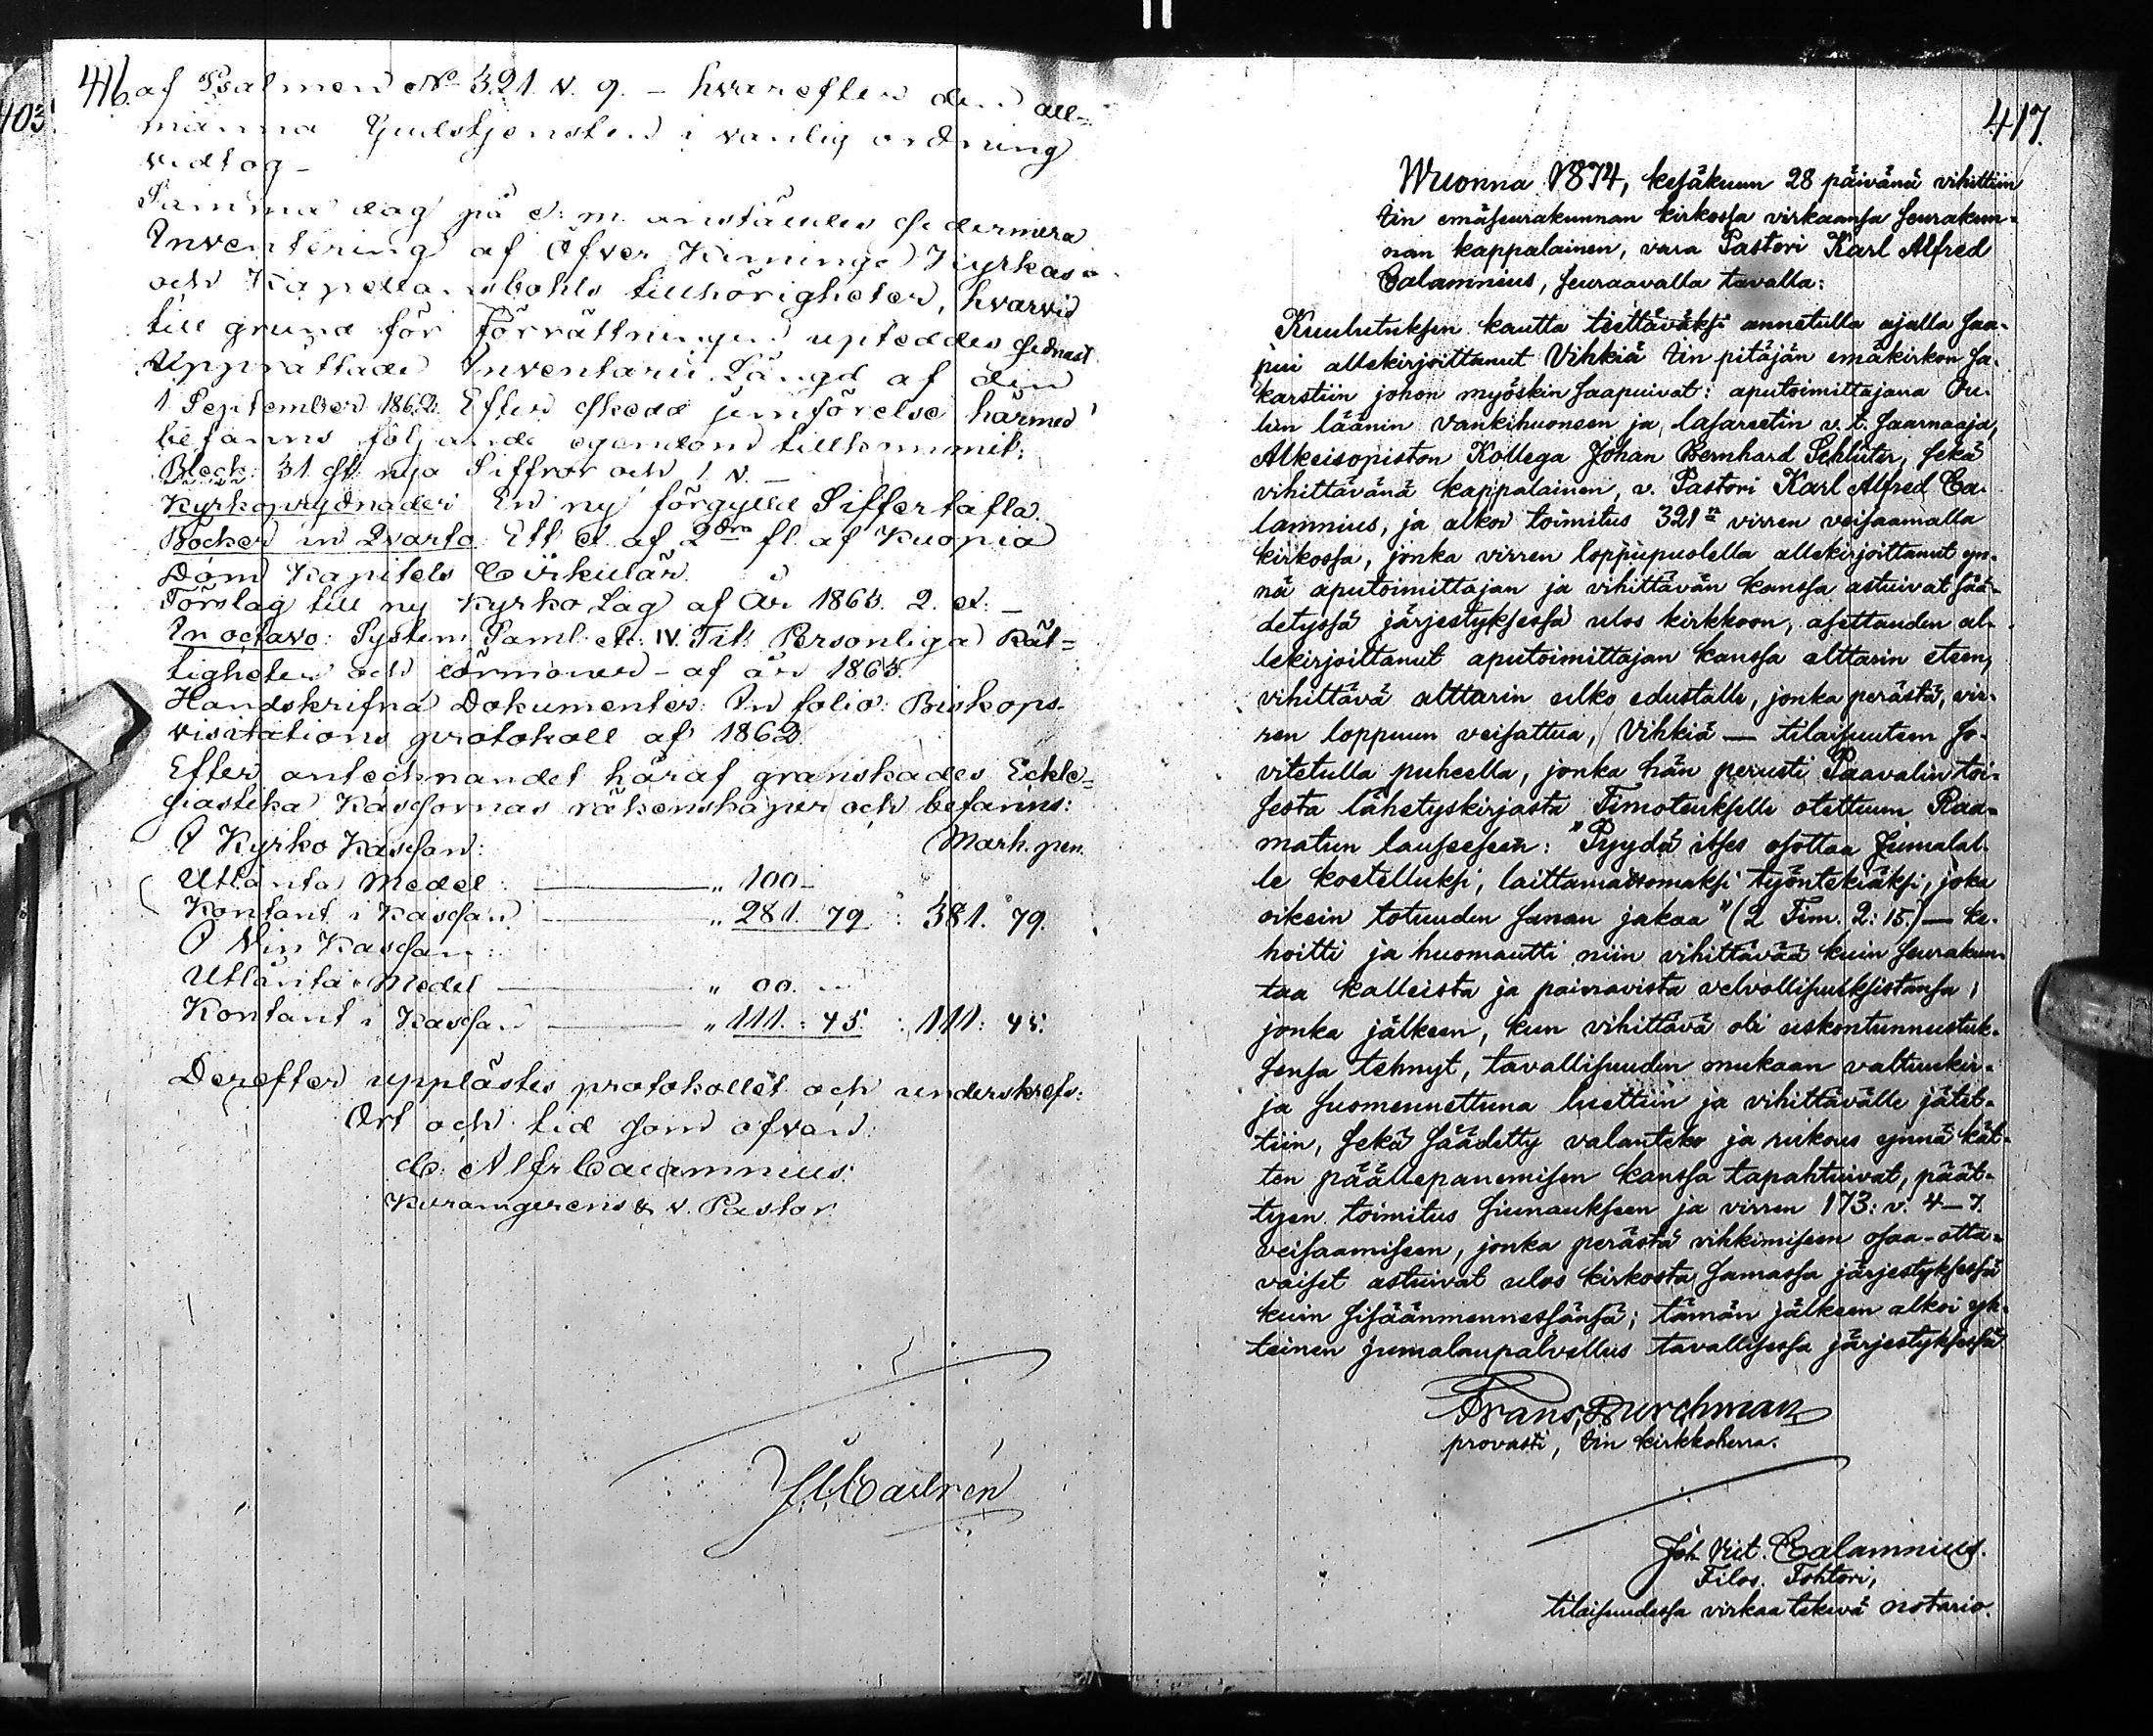 416.
403
af Psalmen No 321 v. 9. – hvarefter den all-
männa Gudstjensten i vanlig ordning
vidtog –
Samma dag på e: m. anstäldes sedermera
Inventering af Öfver Kiminge Kyrkas
och Kapellansbohls tillhörigheter, hvarvid
till grund för förrättningen upteddes sednast
Upprättade Inventarii Längd af den
1 September 1862. Efter skedd jemförelse härmed
befanns följande egendom tillkommit:
Bleck: 31 st nya Siffror och 1 N. –
Kyrkoprydnader: En ny förgylld Siffertafla.
Böcker in Qvarto: Ett ex. af 2dra fl. af Kuopio
Dom Kapitels Cirkulär.
Förslag till ny Kyrko Lag af År 1863. 2. ex: –
In octavo: System. Saml. etc: IV. Tit: Personliga Rät-
tigheter och förmoner – af år 1863.
Handskrifna Dokumenter: In folio: Biskops-
visitations protokoll af 1862.
Efter antecknandet häraf granskades Eckle-
siastika Kassornas räkenskaper och befanns:
I Kyrko Kassan: Mark. pen.
Utlånta Medel: — „ 100 –
Kontant i Kassan — „ 281. 79 : 381. 79.
I Vin Kassan:
Utlånta Medel — „ 00. –
Kontant i Kassan — „ 111. : 45. : 111: 45.
Derefter upplästes protokollet och underskrefs:
Ort och tid som ofvan:
C. Alfr Calamnius.
Kuramgerens & v. Pastor
Castrén
417.
Wuonna 1874, kesäkuun 28 päivänä vihittiin
Iin emäseurakunnan kirkossa virkaansa seurakun-
nan kappalainen, vara Pastori Karl Alfred
Calamnius, seuraavalla tavalla:
Kuulutuksen kautta tiettäväksi annetulla ajalla saa-
pui allekirjoittanut Vihkiä Iin pitäjän emäkirkon sa-
karstiin johon myöskin saapuivat: aputoimittajana Ou-
lun läänin Vankihuoneen ja lasaretin v. t. saarnaaja,
Alkeisopiston Kollega Johan Bernhard Schlüter, sekä
vihittävänä kappalainen, v. Pastori Karl Alfred Ca-
lamnius, ja alkoi toimitus 321n virren veisaamalla
kirkossa, jonka virren loppupuolella allekirjoittanut yn-
nä aputoimittajan ja vihittävän kanssa astuivat sää-
detyssä järjestyksessä ulos kirkkoon, asettauden al-
lekirjoittanut aputoimittajan kanssa alttarin eteen,
vihittävä alttarin ulko edustalle, jonka perästä, vir-
ren loppuun veisattua, Vihkiä — tilaisuuteen so-
vitetulla puheella, jonka hän perusti Paavalin toi-
sesta lähetyskirjasta Timoteukselle otettuun Raa-
matun lauseeseen: "Pyydä itses osottaa Jumalal-
le koetelluksi, laittamattomaksi työntekiäksi, joka
oikein totuuden sanan jakaa" (2 Tim. 2: 15.) — ke-
hoitti ja huomautti niin vihittävää kuin seurakun-
taa kalleista ja painavista velvollisuuksistansa;
jonka jälkeen, kun vihittävä oli uskontunnustuk-
sensa tehnyt, tavallisuuden mukaan valtuuskir-
ja suomennettuna luettiin ja vihittävälle jätet-
tiin, sekä säädetty valanteko ja rukous ynnä kät-
ten päällepanemisen kanssa tapahtuivat, päät-
tyen toimitus siunaukseen ja virren 173: v. 4–7.
veisaamiseen, jonka perästä vihkimiseen osaa-otta-
vaiset astuivat ulos kirkosta samassa järjestyksessä
kuin sisäänmennessänsä; tämän jälkeen alkoi yh-
teinen jumalanpalvellus tavallisessa järjestyksessä.
Frans Burchman
provasti, Iin kirkkoherra.
Joh. Vict. Calamnius.
Filos. Tohtori,
tilaisuudessa virkaa tekevä notario.